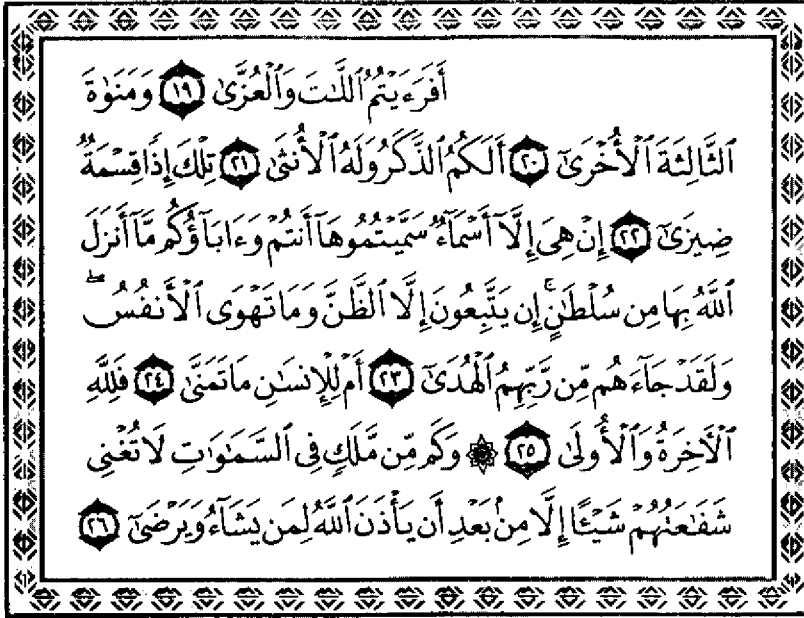 أَفَرَءَيْتُمُ ٱللَّٰتَ وَٱلْعُزَّىٰ ١٩ وَمَنَوٰةَ
ٱلثَّالِثَةَ ٱلْأُخْرَىٰٓ ٢٠ أَلَكُمُ ٱلذَّكَرُ وَلَهُ ٱلْأُنثَىٰ ٢١ تِلْكَ إِذًا قِسْمَةٌ
ضِيزَىٰٓ ٢٢ إِنْ هِىَ إِلَّآ أَسْمَآءٌ سَمَّيْتُمُوهَآ أَنتُمْ وَءَابَآؤُكُم مَّآ أَنزَلَ
ٱللَّهُ بِهَا مِن سُلْطَٰنٍ ۚ إِن يَتَّبِعُونَ إِلَّا ٱلظَّنَّ وَمَا تَهْوَى ٱلْأَنفُسُ ۖ
وَلَقَدْ جَآءَهُم مِّن رَّبِّهِمُ ٱلْهُدَىٰٓ ٢٣ أَمْ لِلْإِنسَٰنِ مَا تَمَنَّىٰ ٢٤ فَلِلَّهِ
ٱلْءَاخِرَةُ وَٱلْأُولَىٰ ٢٥ ۞ وَكَم مِّن مَّلَكٍ فِى ٱلسَّمَٰوَٰتِ لَا تُغْنِى
شَفَٰعَتُهُمْ شَيْـًٔا إِلَّا مِنۢ بَعْدِ أَن يَأْذَنَ ٱللَّهُ لِمَن يَشَآءُ وَيَرْضَىٰٓ ٢٦